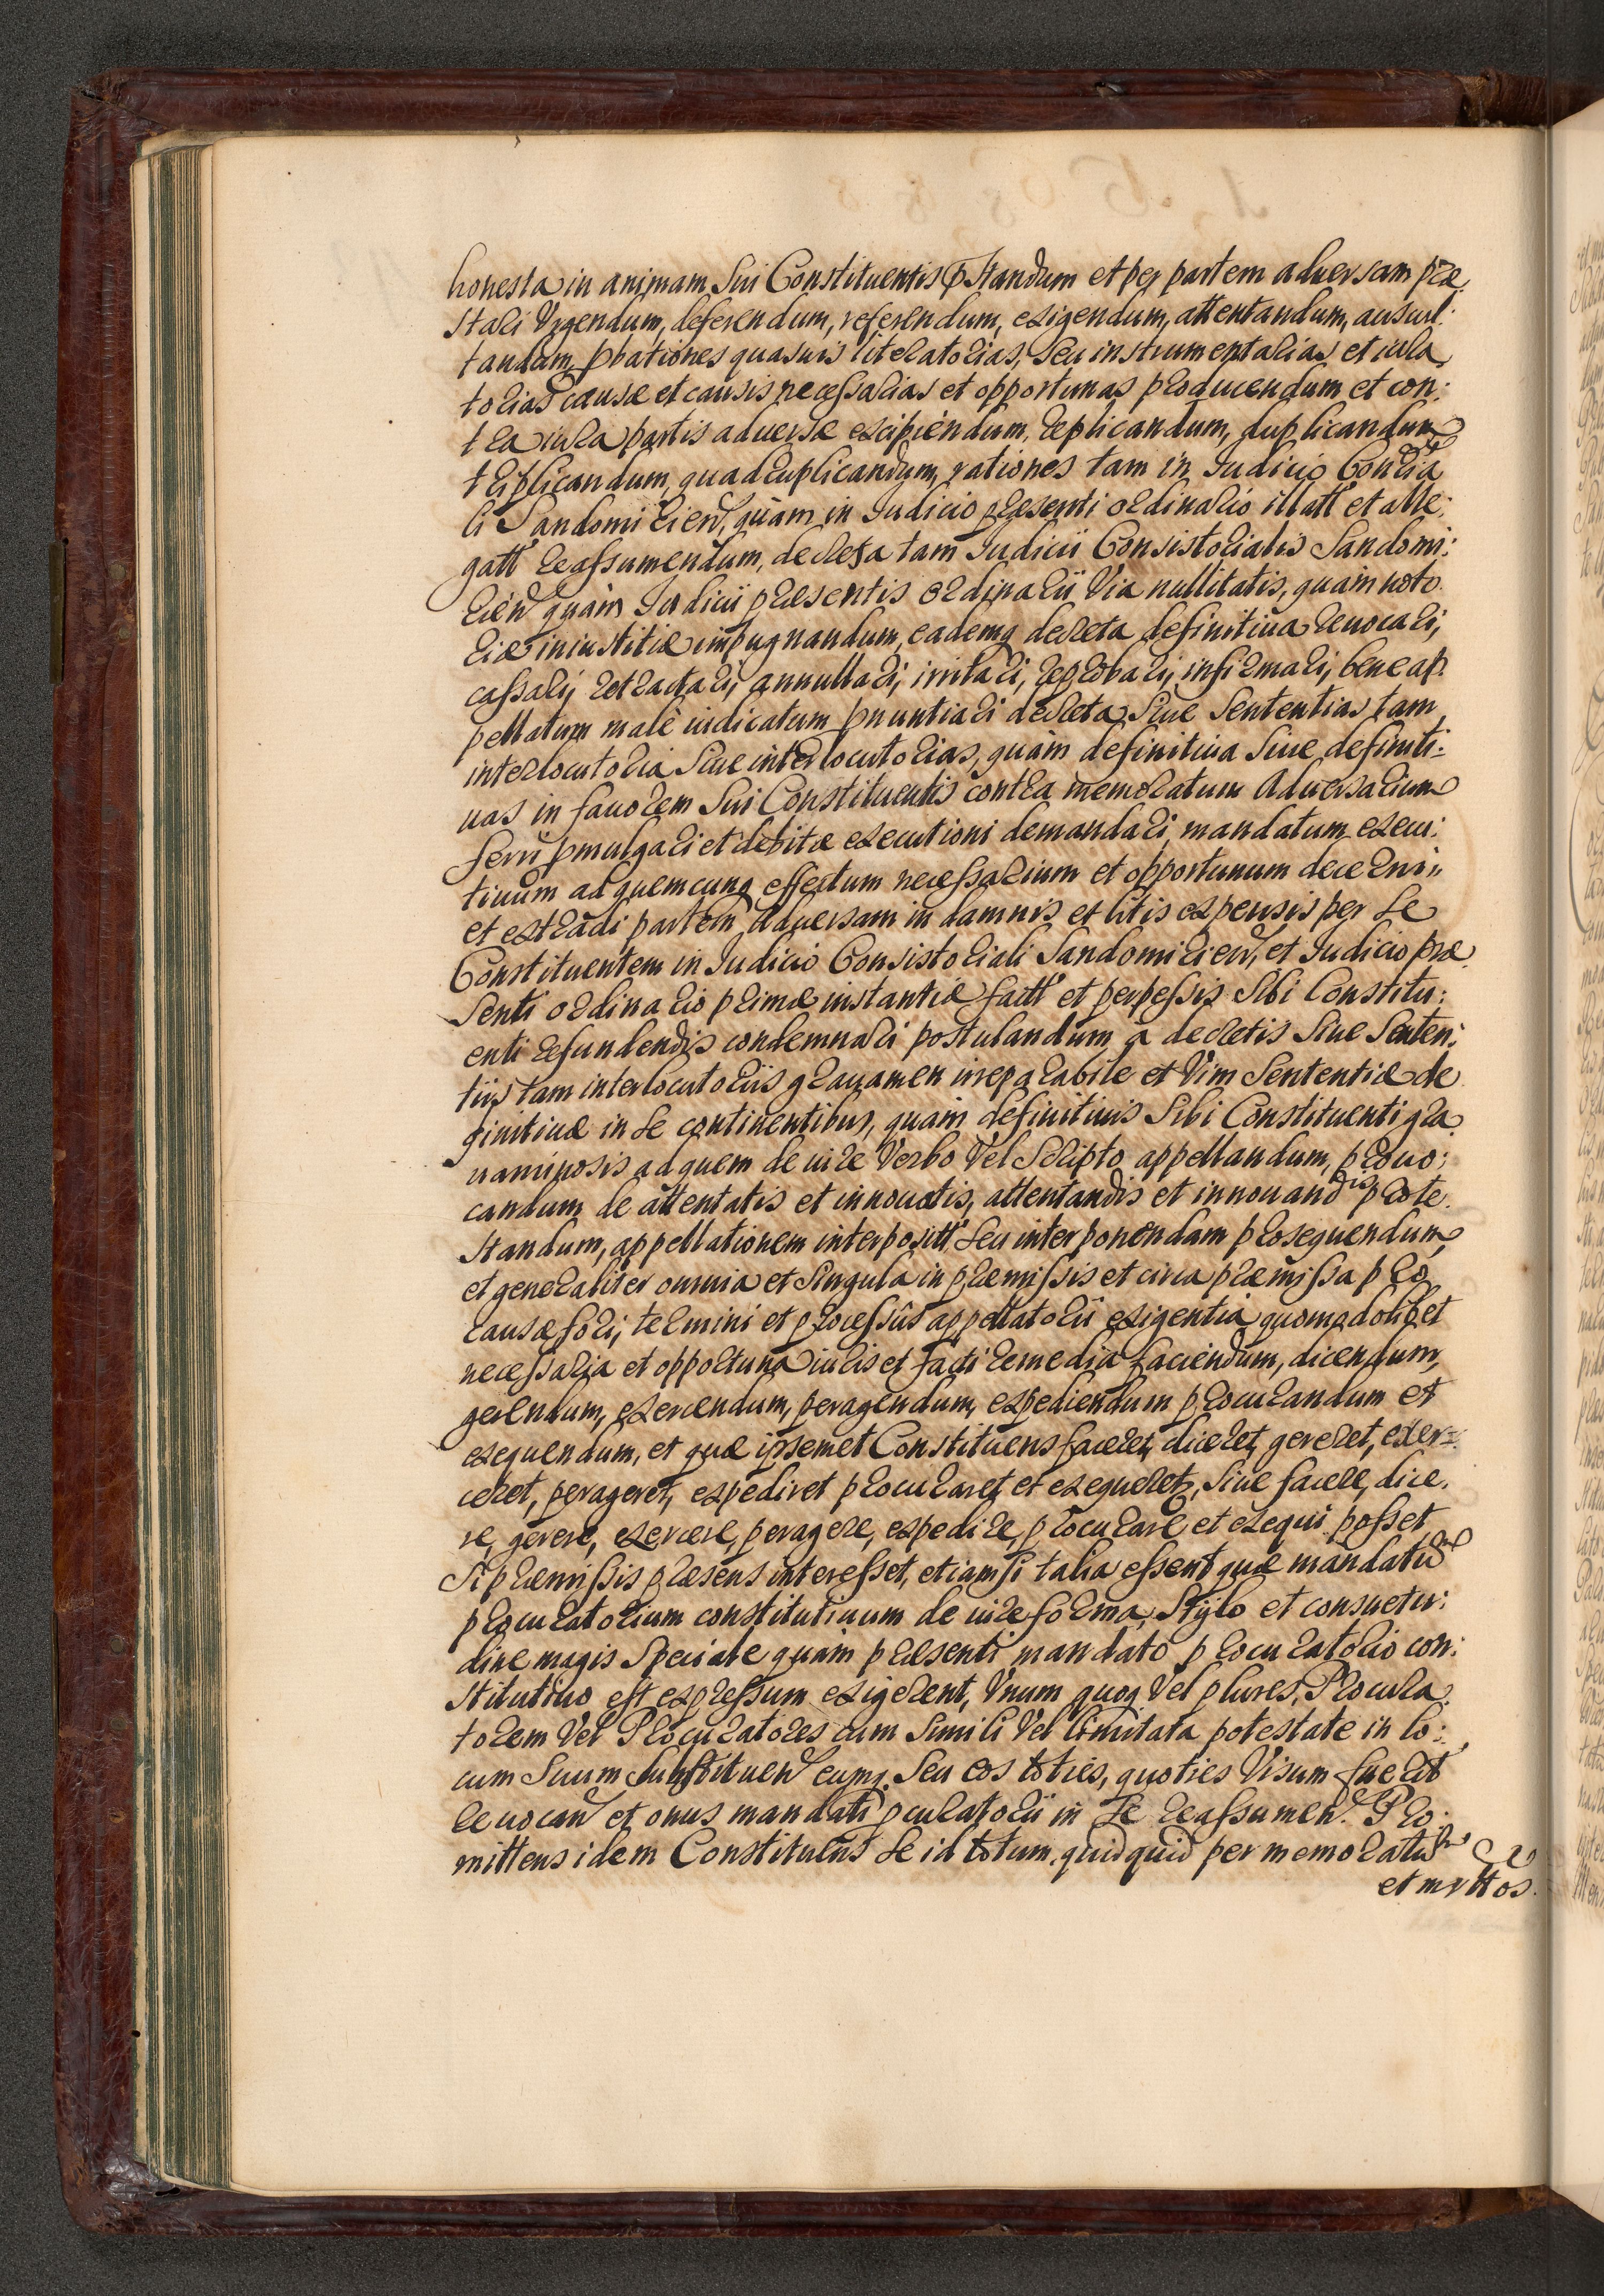 honesta in animam Sui Constituentis p̄standum et per partem adversam præ:
stari Vrgendum, deferendum, referendum, exigendum, attentandum, auscul:
tandum, pbationes quasuis literatorias, Seu instrumentarias et iura
torias causæ et causis necessarias et opportunas producendum et con:
tra iura partis aduersæ excipiendum, replicandum, duplicandum
triplicandum, quadruplicandum, rationes tam in Iudicio Consia
li Sandomirien, quàm in Iudicio præsenti ordinario illatt et alle:
gatt reassumendum, decreta tam Iudicii Consistorialis Sandomi:
rien quàm Iudicii præsentis ordinarii Via nullitatis, quàm noto
riæ iniustitiæ impugnandum, eademq decreta definitiua reuocari,
cassari, retractari, annullari, irritari, reprobari, infirmari, bene ap:
pellatum malè iudicatum pnuntiari decreta Siue Sententias tam
interlocutoria Siue interlocutorias, quàm definitiua Siue definiti:
uas in fauorem Sui Constituentis contra memoratum Aduersarium
ferri pmulgari et debitæ executioni demandari, mandatum execu:
tiuum ad quemcunq effectum necessarium et opportunum decerni
et extradi partem Aduersam in damnis et litis expensis per Se
Constituentem in Iudicio Consistoriali Sandomirien, et Iudicio præ
Senti ordinario primæ instantiæ factt et perpessis Sibi Constitu:
enti refundendis condemnari postulandum, à decretis Siue Senten:
tiis tam interlocutoriis grauamen irreparabile et Vim Sententiæ de
finitiuæ in Se continentibus, quàm definitiuis Sibi Constituenti gra
uaminosis ad quem de iure Verbo Vel Scripto appellandum, prouo:
candum de attentatis et innouatis, attentandis et innouandis prote
standum, appellationem interpositt Seu interponendam prosequendum
et generaliter omnia et Singula in præmissis et circa præmissa pro
causæ fori, termini et processûs appellatorii exigentia quomodolibet
necessaria et opportuna iuris et facti remedia faciendum, dicendum,
gerendum, exercendum, peragendum, expediendum procurandum et
exequendum, et quæ ipsemet Constituens faceret, diceret, gereret, exer=
ceret, perageret, expediret procuraret et exequeretz, Siue facere, dice.
re, gerere, exercere, peragere, expedire, procurare et exequi posset
Si præmissis præsens interesset, etiamsi talia essent quæ mandatū
procuratorium constitutiuum de iure forma, Stylo et consuetu:
dine magis Speciale quàm præsenti mandato procuratorio con:
stitutiuo est expressum exigerent, Vnum quoq Vel plures, Procura:
torem Vel Procuratores cum Simili Vel limitata potestate in lo:
cum Suum Substituen eumq Seu eos toties, quoties Visum fuerit
reuocan et onus mandati pcuratorii in Se reassumen. Pro:
mittens idem Constituens Se id totum quidquid per memoratū
et mrttos